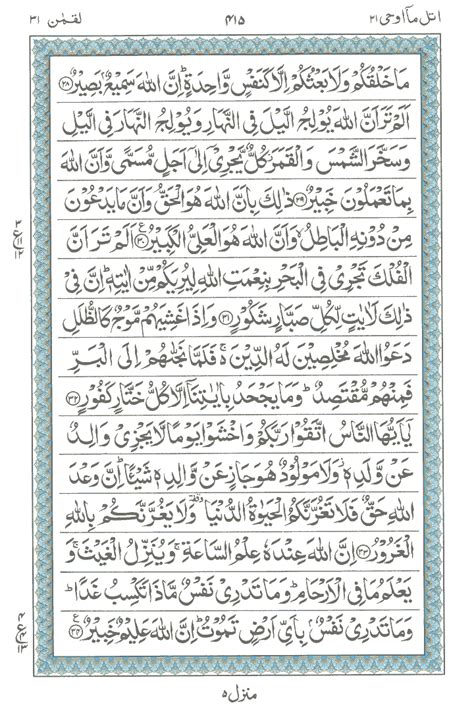 اتل مآ اوحی ۲۱ ۴۱۵ لقمٰن ۳۱
مَا خَلْقُكُمْ وَلَا بَعْثُكُمْ اِلَّا كَنَفْسٍ وَّاحِدَةٍ ؕ اِنَّ اللّٰهَ سَمِيْعٌۢ بَصِيْرٌ ﴿۲۸﴾
اَلَمْ تَرَ اَنَّ اللّٰهَ يُوْلِجُ الَّيْلَ فِى النَّهَارِ وَيُوْلِجُ النَّهَارَ فِى الَّيْلِ
وَسَخَّرَ الشَّمْسَ وَالْقَمَرَ ؗ كُلٌّ يَّجْرِىْۤ اِلٰٓى اَجَلٍ مُّسَمًّى وَّاَنَّ اللّٰهَ
بِمَا تَعْمَلُوْنَ خَبِيْرٌ ﴿۲۹﴾ ذٰلِكَ بِاَنَّ اللّٰهَ هُوَ الْحَقُّ وَاَنَّ مَا يَدْعُوْنَ
مِنْ دُوْنِهِ الْبَاطِلُ ۙ وَاَنَّ اللّٰهَ هُوَ الْعَلِىُّ الْكَبِيْرُ ﴿۳۰﴾ اَلَمْ تَرَ اَنَّ
الْفُلْكَ تَجْرِىْ فِى الْبَحْرِ بِنِعْمَتِ اللّٰهِ لِيُرِيَكُمْ مِّنْ اٰيٰتِهٖ ؕ اِنَّ فِىْ
ذٰلِكَ لَاٰيٰتٍ لِّكُلِّ صَبَّارٍ شَكُوْرٍ ﴿۳۱﴾ وَاِذَا غَشِيَهُمْ مَّوْجٌ كَالظُّلَلِ
دَعَوُا اللّٰهَ مُخْلِصِيْنَ لَهُ الدِّيْنَ ۚ فَلَمَّا نَجّٰىهُمْ اِلَى الْبَرِّ
فَمِنْهُمْ مُّقْتَصِدٌ ؕ وَمَا يَجْحَدُ بِاٰيٰتِنَاۤ اِلَّا كُلُّ خَتَّارٍ كَفُوْرٍ ﴿۳۲﴾
يٰۤاَيُّهَا النَّاسُ اتَّقُوْا رَبَّكُمْ وَاخْشَوْا يَوْمًا لَّا يَجْزِىْ وَالِدٌ
عَنْ وَّلَدِهٖ ؗ وَلَا مَوْلُوْدٌ هُوَ جَازٍ عَنْ وَّالِدِهٖ شَيْئًا ؕ اِنَّ وَعْدَ
اللّٰهِ حَقٌّ فَلَا تَغُرَّنَّكُمُ الْحَيٰوةُ الدُّنْيَا ۥ وَلَا يَغُرَّنَّكُمْ بِاللّٰهِ
الْغَرُوْرُ ﴿۳۳﴾ اِنَّ اللّٰهَ عِنْدَهٗ عِلْمُ السَّاعَةِ ۚ وَيُنَزِّلُ الْغَيْثَ ۚ وَ
يَعْلَمُ مَا فِى الْاَرْحَامِ ؕ وَمَا تَدْرِىْ نَفْسٌ مَّاذَا تَكْسِبُ غَدًا ؕ
وَمَا تَدْرِىْ نَفْسٌۢ بِاَىِّ اَرْضٍ تَمُوْتُ ؕ اِنَّ اللّٰهَ عَلِيْمٌ خَبِيْرٌ ﴿۳۴﴾
منزل ۵